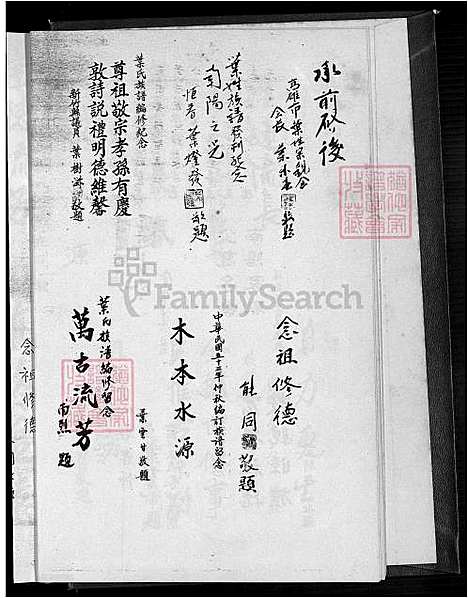 承前啟後
高雄市葉姓宗親會
會長 葉
敬題
葉姓族譜發刊紀念
南陽之光
恒春 葉燈發
敬題
葉氏族譜編修紀念
尊祖敬宗孝孫有慶
敦詩説禮明德維馨
新竹縣議員 葉樹 敬題
念祖修德
同
敬題
中華民國五十三年仲秋編訂族譜留念
木本水源
葉雲甘敬題
葉氏族譜編修留念
萬古流芳
題
念祖修德
FamilySearch